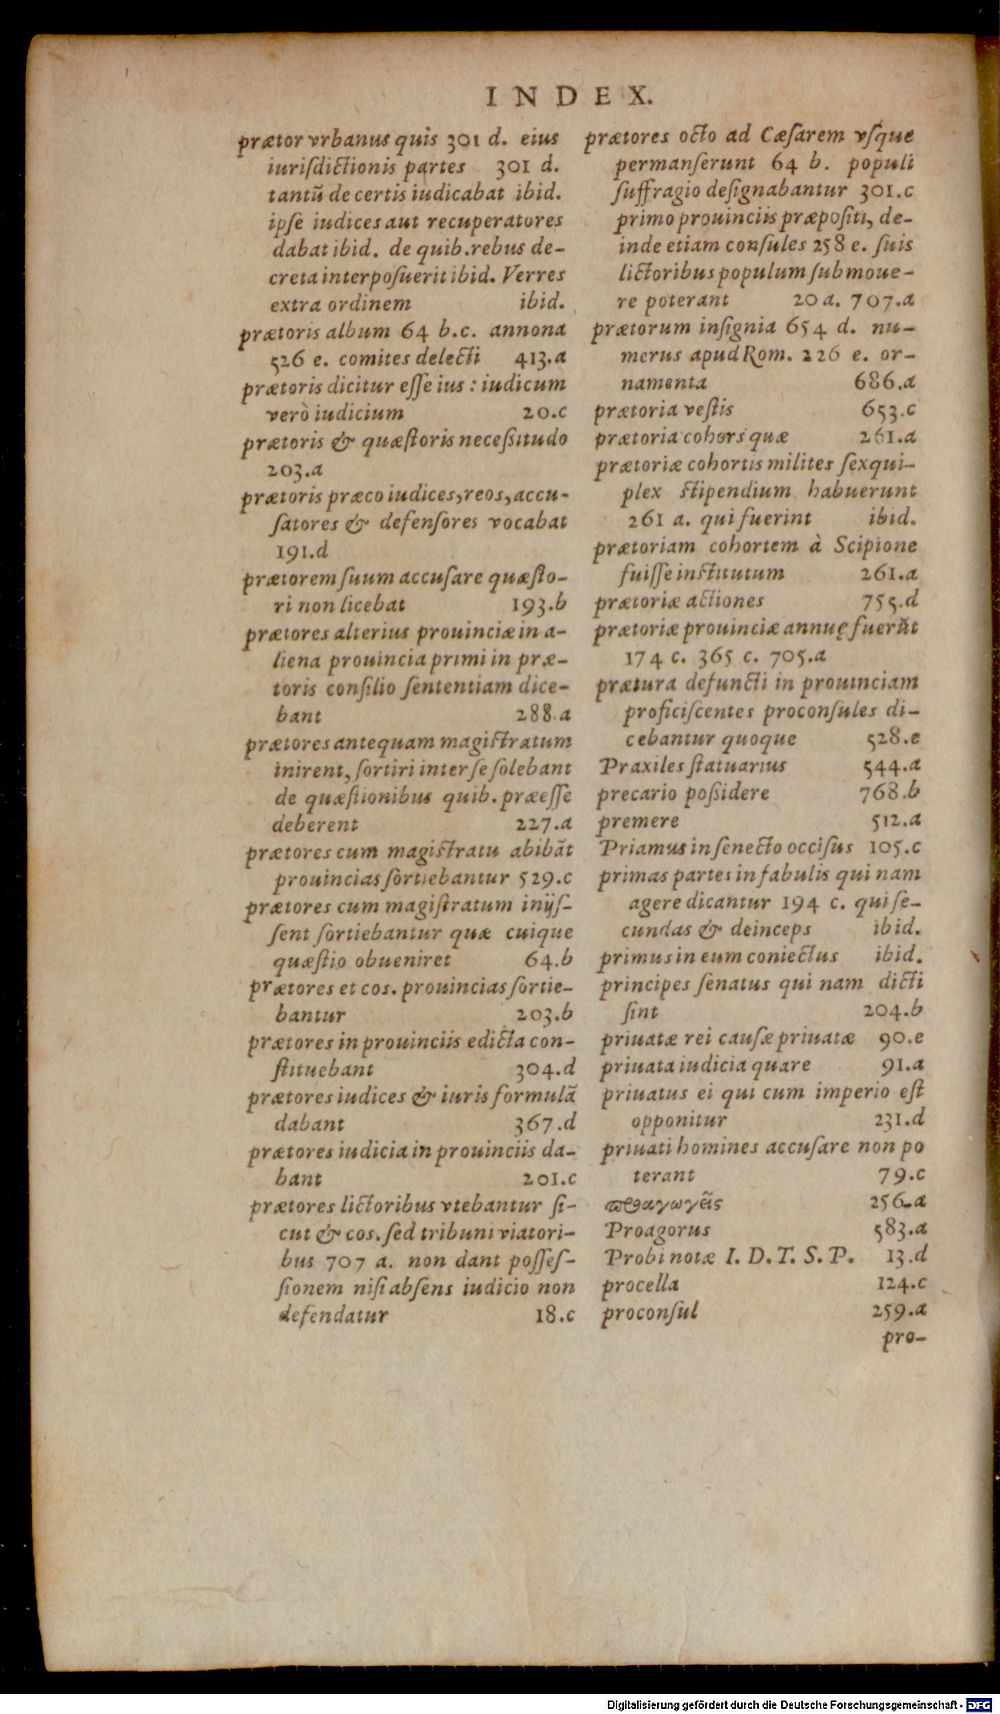 INDEX.
prætor vrbanus quis 301 d. eius
iuriſdictionis partes 301 d.
tantũ de certis iudicabat ibid.
ipſe iudices aut recuperatores
dabat ibid. de quib.rebus de-
creta interpoſuerit ibid. Verres
extra ordinem ibid.
prætoris album 64 b.c. annona
526 e. comites delecti 413.a
prætoris dicitur eſſe ius : iudicum
verò iudicium 20.c
prætoris & quæſtoris neceſſitudo
203.a
prætoris præco iudices,reos,accu-
ſatores & defenſores vocabat
191.d
prætorem ſuum accuſare quæſto-
ri non licebat 193.b
prætores alterius prouinciæ in a-
liena prouincia primi in præ-
toris conſilio ſententiam dice-
bant 288.a
prætores antequam magiſtratum
inirent, ſortiri inter ſe ſolebant
de quæſtionibus quib. præeſſe
deberent 227.a
prætores cum magiſtratu abibãt
prouincias ſortiebantur 529.c
prætores cum magiſtratum inijſ-
ſent ſortiebantur quæ cuique
quæſtio obueniret 64.b
prætores et cos. prouincias ſortie-
bantur 203.b
prætores in prouinciis edicta con-
ſtituebant 304.d
prætores iudices & iuris formulã
dabant 367.d
prætores iudicia in prouinciis da-
bant 201.c
prætores lictoribus vtebantur ſi-
cut & cos. ſed tribuni viatori-
bus 707 a. non dant poſſeſ-
ſionem niſi abſens iudicio non
defendatur 18.c
prætores octo ad Cæſarem vſque
permanſerunt 64 b. populi
ſuffragio deſignabantur 301.c
primo prouinciis præpoſiti, de-
inde etiam conſules 258 e. ſuis
lictoribus populum ſubmoue-
re poterant 20 a. 707.a
prætorum inſignia 654 d. nu-
merus apud Rom. 226 e. or-
namenta 686.a
prætoria veſtis 653.c
prætoria cohors quæ 261.a
prætoriæ cohortis milites ſexqui-
plex ſtipendium habuerunt
261 a. qui fuerint ibid.
prætoriam cohortem à Scipione
fuiſſe inſtitutum 261.a
prætoriæ actiones 755.d
prætoriæ prouinciæ annuę fuerũt
174 c. 365 c. 705.a
prætura defuncti in prouinciam
proficiſcentes proconſules di-
cebantur quoque 528.e
Praxiles ſtatuarius 544.a
precario poſſidere 768.b
premere 512.a
Priamus in ſenecto occiſus 105.c
primas partes in fabulis qui nam
agere dicantur 194 c. qui ſe-
cundas & deinceps ibid.
primus in eum coniectus ibid.
principes ſenatus qui nam dicti
ſint 204.b
priuatæ rei cauſæ priuatæ 90.e
priuata iudicia quare 91.a
priuatus ei qui cum imperio eſt
opponitur 231.d
priuati homines accuſare non po
terant 79.c
256.a
Proagorus 583.a
Probi notæ I. D. T. S. P. 13.d
procella 124.c
proconſul 259.a
pro-
Digitalisierung gefördert durch die Deutsche Forschungsgemeinschaft - DFG